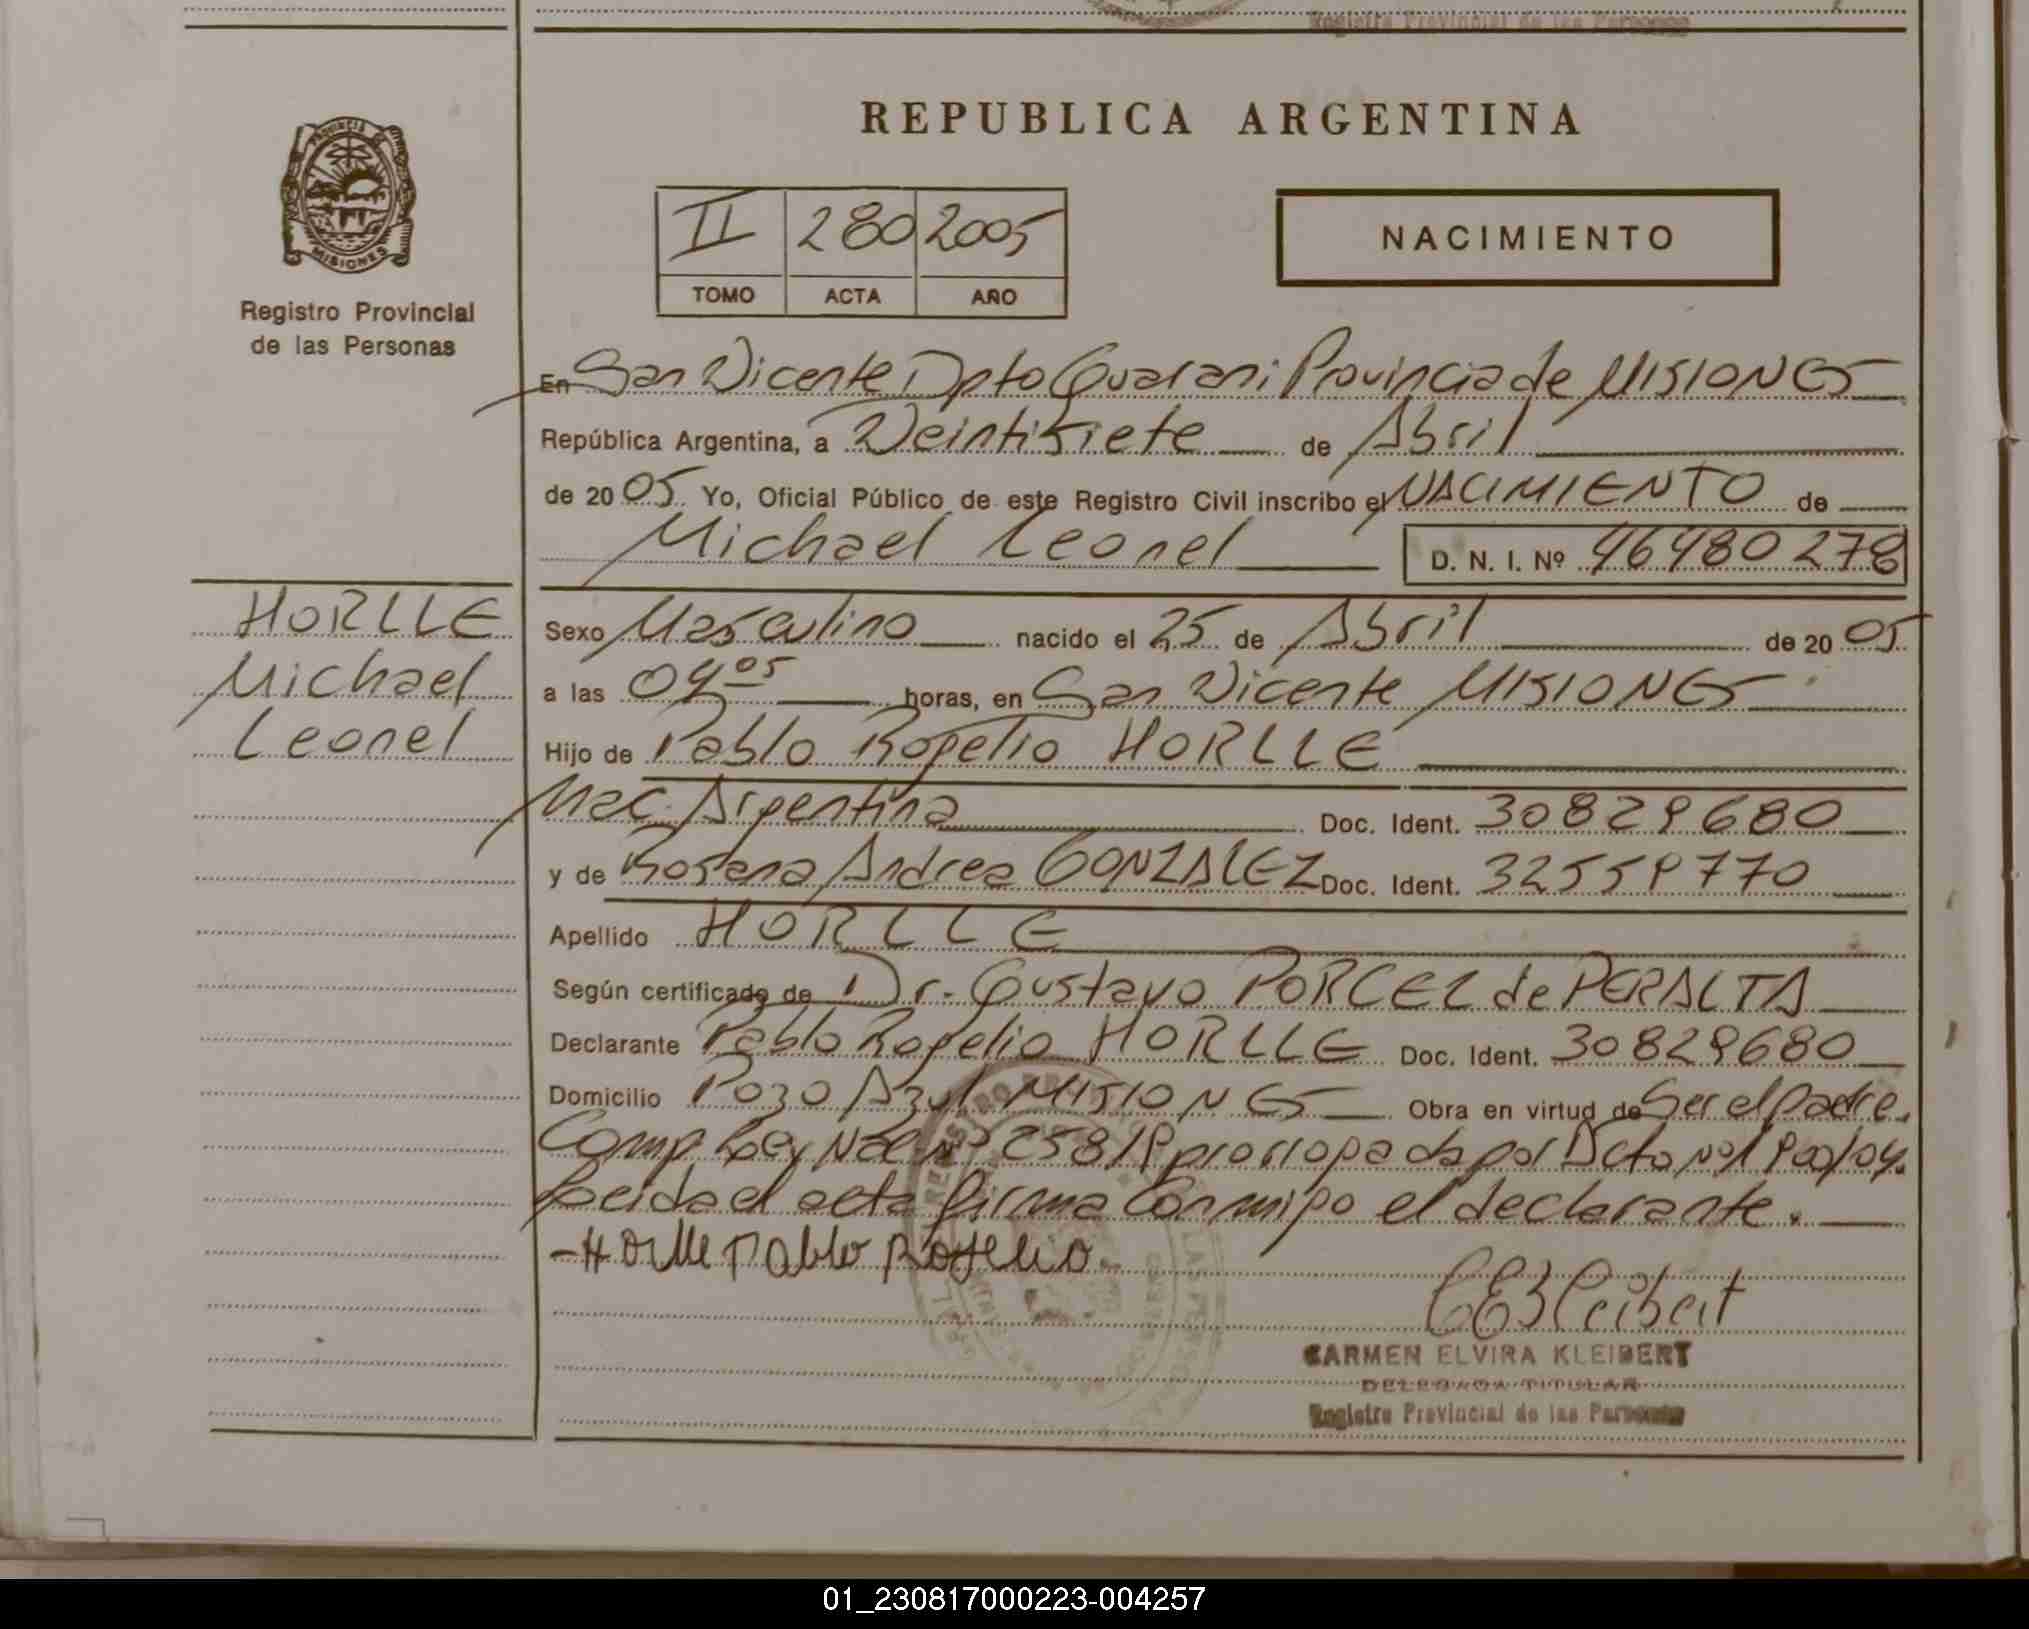 Registro Provincial de las Personas
PROVINCIA DE
MISIONES
Registro Provincial
de las Personas
REPUBLICA ARGENTINA
II 280 2005
TOMO ACTA AÑO
NACIMIENTO
En San Vicente Dpto Guarani Provincia de MISIONES
República Argentina, a Veintisiete de Abril
de 2005 Yo, Oficial Público de este Registro Civil inscribo el NACIMIENTO de
Michael Leonel D. N. I. Nº 46480278
HORLLE
Michael
Leonel
Sexo Masculino nacido el 25 de Abril de 2005
a las 04 05 horas, en San Vicente MISIONES
Hijo de Pablo Rogelio HORLLE
Nac. Argentina Doc. Ident. 30829680
y de Rosana Andrea GONZALEZ Doc. Ident. 32559770
Apellido HORLLE
Según certificado de Dr. Gustavo PORCEL de PERALTA
Declarante Pablo Rogelio HORLLE Doc. Ident. 30829680
Domicilio Pozo Azul MISIONES Obra en virtud de Ser el padre.
Comp. Ley Nac Nº 25819 prorrogada por Dcto Nal 900/04.
Leida el acta firma Conmigo el declarante.
-Horlle Pablo Rogelio.
CEKleibert
CARMEN ELVIRA KLEIBERT
DELEGADA TITULAR
Registro Provincial de las Personas
01_230817000223-004257